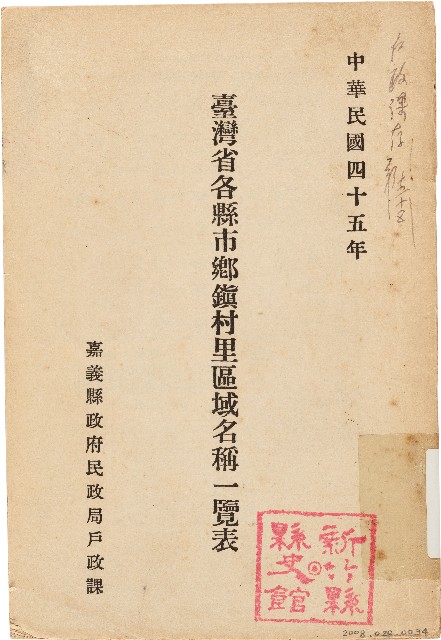 中華民國四十五年
臺灣省各縣市鄉鎭村里區域名稱一覽表
嘉義縣政府民政局戶政課
新竹縣
縣史館
2008.020.0034